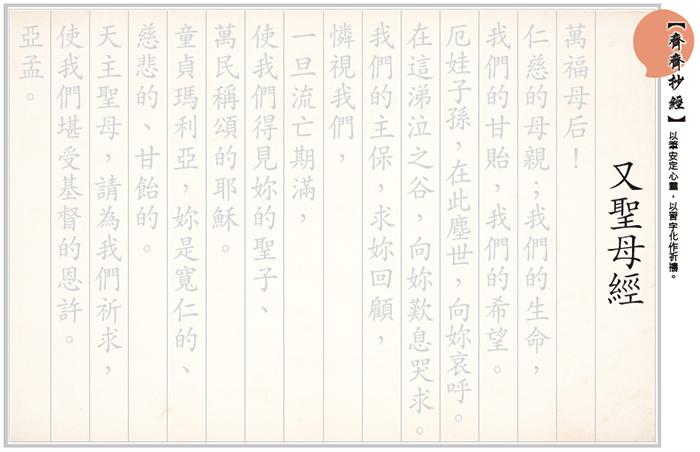 【齊齊抄經】
以筆安定心靈，以習字化作祈禱。
又聖母經
萬福母后！
仁慈的母親；我們的生命，
我們的甘貽，我們的希望。
厄娃子孫，在此塵世，向妳哀呼。
在這涕泣之谷，向妳歎息哭求。
我們的主保，求妳回顧，
憐視我們，
一旦流亡期滿，
使我們得見妳的聖子、
萬民稱頌的耶穌。
童貞瑪利亞，妳是寬仁的、
慈悲的、甘飴的。
天主聖母，請為我們祈求，
使我們堪受基督的恩許。
亞孟。